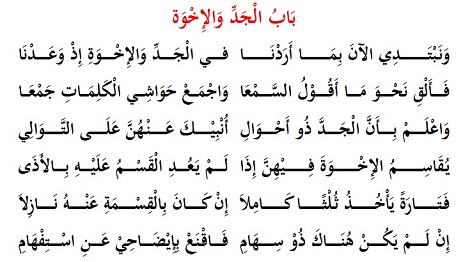 بَابُ الْجَدِّ وَالإِخْوَة
وَنَبْتَدِي الآنَ بِمَا أَرَدْنَا فِي الْجَدِّ وَالإِخْوَةِ إِذْ وَعَدْنَا
فَأَلْقِ نَحْوَ مَا أَقُولُ السَّمْعَا وَاجْمَعْ حَوَاشِي الْكَلِمَاتِ جَمْعَا
وَاعْلَمْ بِأَنَّ الْجَدَّ ذُو أَحْوَالِ أُنْبِيكَ عَنْهُنَّ عَلَى التَّوَالِي
يُقَاسِمُ الإِخْوَةَ فِيْهِنَّ إِذَا لَمْ يَعُدِ الْقَسْمُ عَلَيْهِ بِالأَذَى
فَتَارَةً يَأْخُذُ ثُلْثًا كَامِلاَ إِنْ كَانَ بِالْقِسْمَةِ عَنْهُ نَازِلاَ
إِنْ لَمْ يَكُنْ هُنَاكَ ذُو سِهَامِ فَاقْنَعْ بِإِيْضَاحِيْ عَنِ اسْتِفْهَامِ